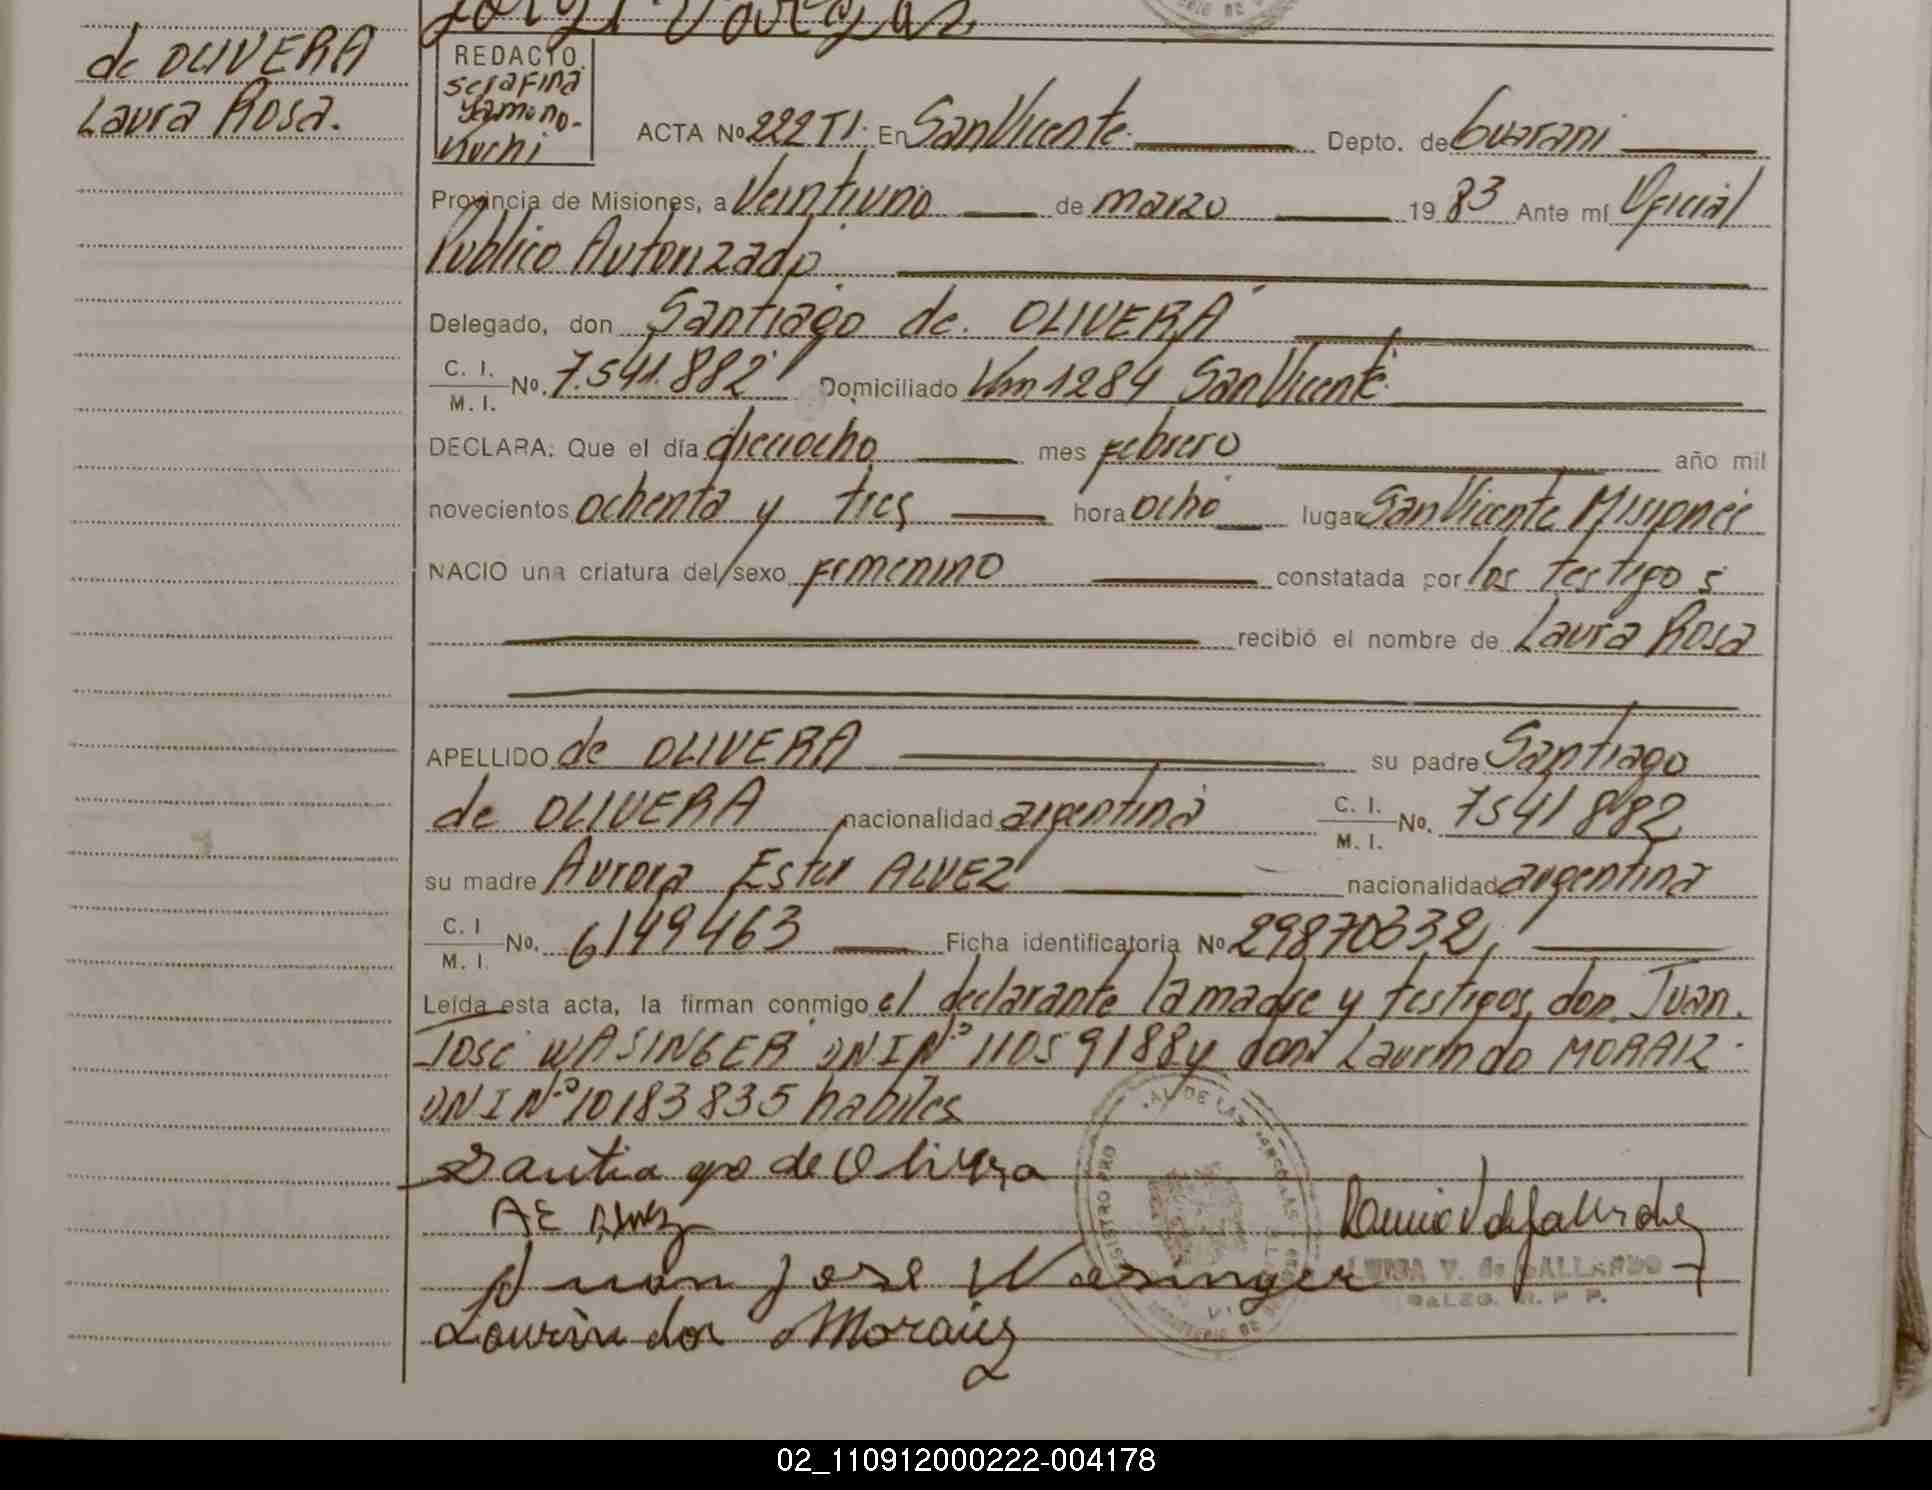 de OLIVERA
Laura Rosa.
Jorge Vargas
REDACTO.
serafina
Yamono-
Kuchi
ACTA No 222 TI. En San Vicente Depto. de Guarani
Provincia de Misiones, a Veintiuno de marzo 19 83 Ante mí Oficial
Publico Autorizado
Delegado, don Santiago de. OLIVERA
C. I.
M. I.
No. 7.541.882 Domiciliado Km 1284 San Vicente
DECLARA: Que el día dieciocho mes febrero año mil
novecientos ochenta y tres hora ocho lugar San Vicente Misiones
NACIO una criatura del sexo femenino constatada por los testigos
recibió el nombre de Laura Rosa
APELLIDO de OLIVERA su padre Santiago
de OLIVERA nacionalidad argentina C. I.
M. I.
No. 7541882
su madre Aurora Ester ALVEZ nacionalidad argentina
C. I
M. I.
No. 6149463 Ficha identificatoria No 29870332
Leída esta acta, la firman conmigo el declarante la madre y testigos, don Juan.
José WASINGER DNI Nº 11059188 y don Laurindo MORAIZ
DNI Nº 10183835 habiles
Santiago de Olivera
AE Alvez
Juan Jose Wasinger
LUISA V. de GALLARDO
DELEG. R. P. P.
Laurindor Moraiz
02_110912000222-004178